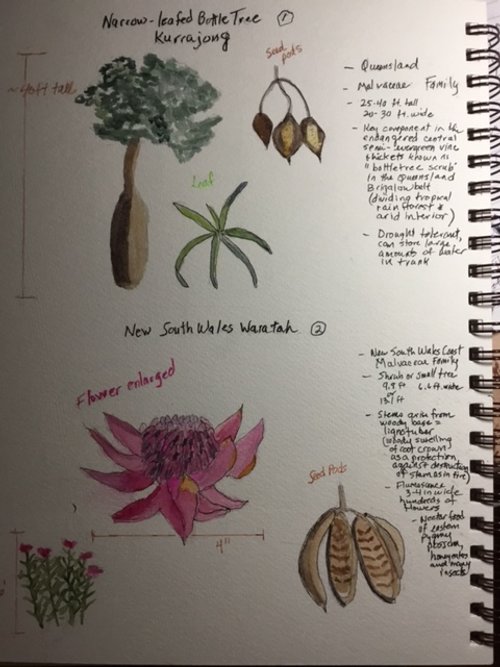 Narrow-leafed Bottle Tree ①
Kurrajong
~40ft tall
Seed
pods
Leaf
— Queensland
— Malvaceae Family
— 25-40 ft. tall
20-30 ft. wide
— Key component in the
endangered central
semi-evergreen vine
thickets known as
"bottletree scrub"
in the Queensland
Brigalow belt
(dividing tropical
rainforest &
arid interior)
— Drought tolerant,
can store large
amounts of water
in trunk
New South Wales Waratah ②
Flower enlarged
4"
Seed Pods
— New South Wales Coast
Malvaceae Family
— Shrub or small tree
9.8 ft 6.6 ft. wide
or
13.1 ft
— Stems arise from
woody base =
lignotuber
(woody swelling
of root crown
as a protection
against destruction
of stem as in fire)
3-4 in wide
hundreds of
flowers
— Nectar food
of eastern
pygmy
possum,
honeyeaters
and many
insects